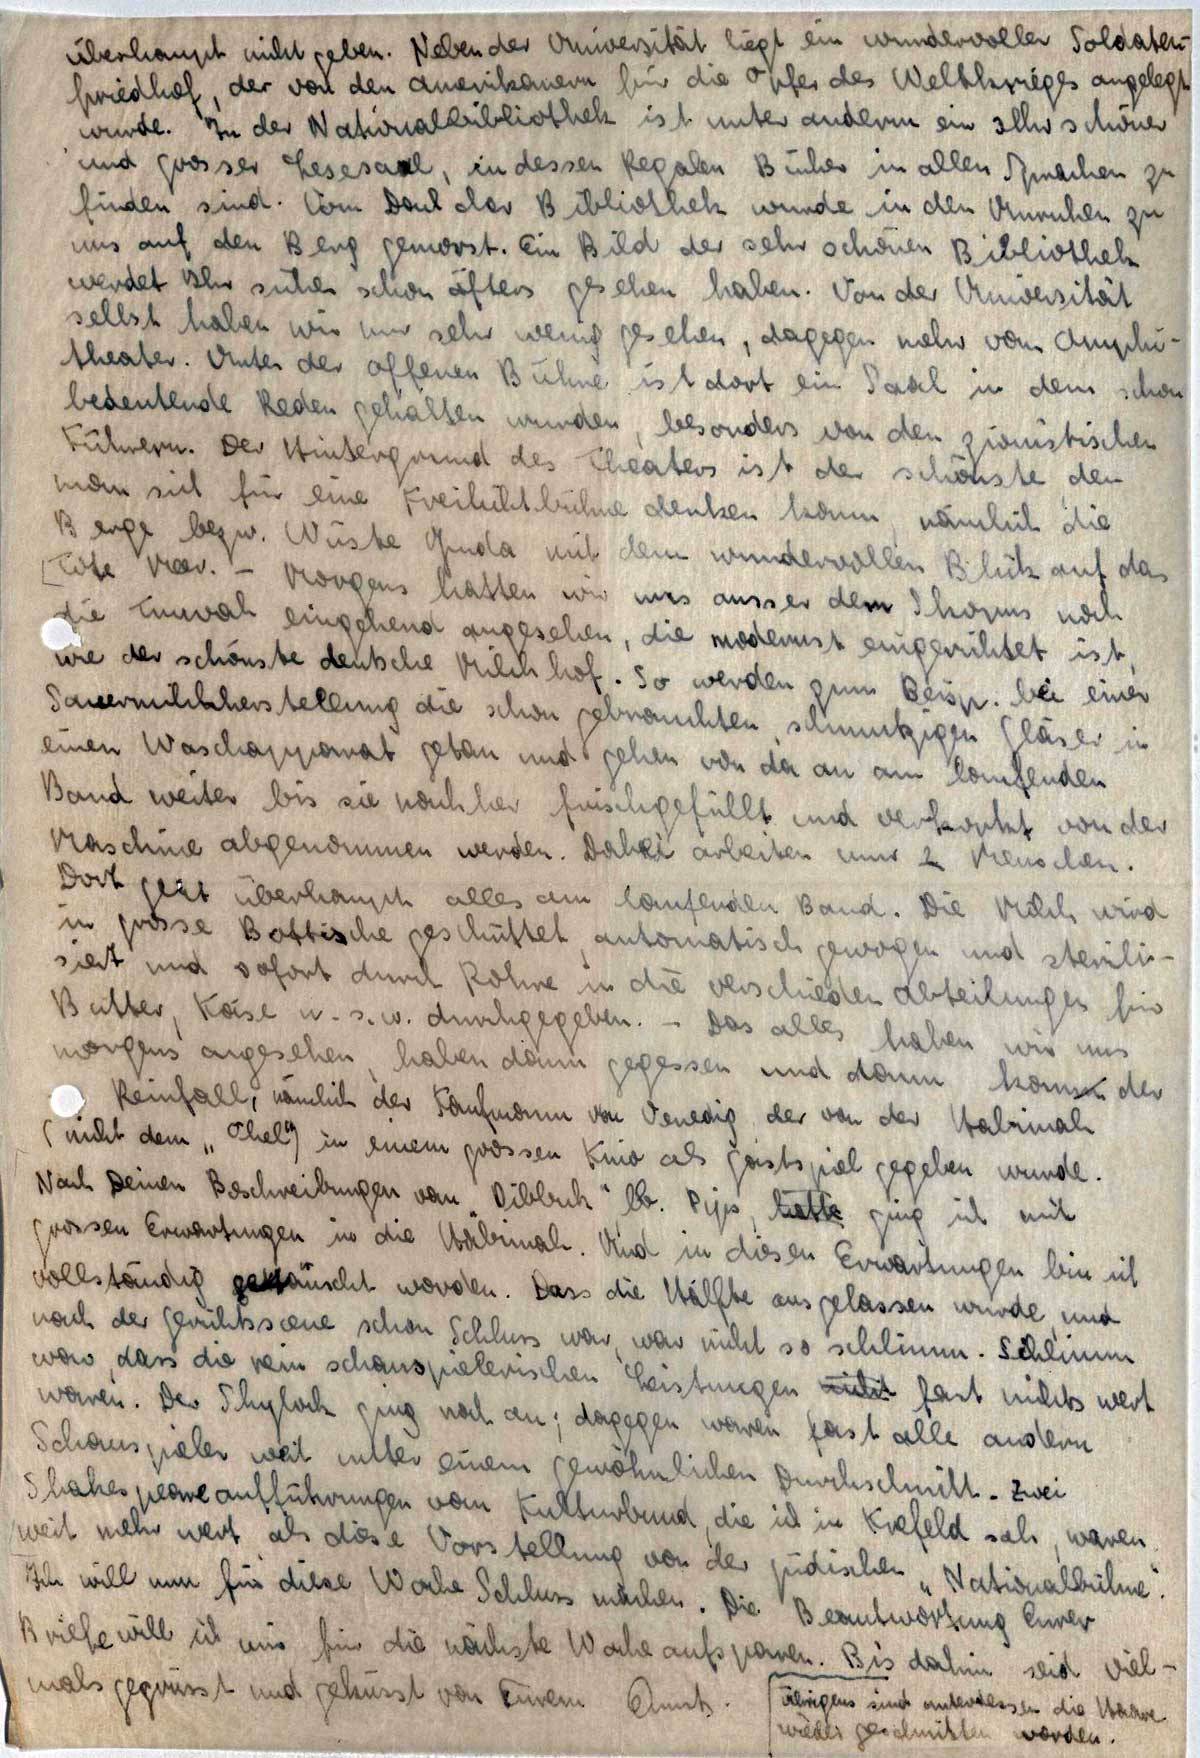 überhaupt nicht geben. Neben der Universität liegt ein wundervoller Soldaten-
friedhof, der von den Amerikanern für die Opfer des Weltkrieges angelegt
wurde. In der Nationalbibliothek ist unter anderm ein sehr schöner
und grosser Lesesaal, in dessen Regalen Bücher in allen Sprachen zu
finden sind. Vom Dach der Bibliothek wurde in den Unruhen zu
uns auf den Berg gemorst. Ein Bild der sehr schönen Bibliothek
werdet Ihr sicher schon öfters gesehen haben. Von der Universität
selbst haben wir nur sehr wenig gesehen, dagegen mehr vom Amphi-
theater. Unter der offenen Bühne ist dort ein Saal in dem schon
bedeutende Reden gehalten wurden, besonders von den zionistischen
Führern. Der Hintergrund des Theaters ist der schönste den
man sich für eine Freilichtbühne denken kann, nämlich die
Berge bezw. Wüste Juda mit dem wundervollen Blick auf das
Tote Meer. – Morgens hatten wir uns ausser dem noch
die Tnuvah eingehend angesehen, die modernst eingerichtet ist,
wie der schönste deutsche Milchhof. So werden zum Beisp. bei einer
Sauermilchherstellung die schon gebrauchten, schmutzigen Gläser in
einen Waschapparat getan und gehen von da an am laufenden
Band weiter bis sie nachher frischgefüllt und verkorkt von der
Maschine abgenommen werden. Dabei arbeiten nur 2 Menschen.
Dort geht überhaupt alles am laufenden Band. Die Milch wird
in grosse Bottische geschüttet, automatisch gewogen und sterili-
siert und sofort durch Rohre in die verschieden Abteilungen für
Butter, Käse u. s. w. durchgegeben. – Das alles haben wir uns
morgens angesehen, haben dann gegessen und dann kam der
Reinfall, nämlich der Kaufmann von Venedig, der von der Habimah
(nicht dem „Ohel“) in einem grossen Kino als Gastspiel gegeben wurde.
Nach Deinen Beschreibungen vom „Dibbuk“ lb. Pips, hatte ging ich mit
grossen Erwartungen in die Habimah. Und in diesen Erwartungen bin ich
vollständig getäuscht worden. Dass die Hälfte ausgelassen wurde und
nach der Gerichtsscene schon Schluss war, war nicht so schlimm. Schlimm
war, dass die rein schauspielerischen Leistungen nicht fast nichts wert
waren. Der Shylock ging noch an; dagegen waren fast alle andern
Schauspieler weit unter einem gewöhnlichen Durchschnitt. Zwei
Shakespeareaufführungen vom Kulturbund, die ich in Krefeld sah, waren
weit mehr wert als diese Vorstellung von der jüdischen „Nationalbühne“.
Ich will nun für diese Woche Schluss machen. Die Beantwortung Eurer
Briefe will ich mir für die nächste Woche aufsparen. Bis dahin seid viel-
mals gegrüsst und geküsst von Eurem
Übrigens sind unterdessen die Haare
wieder geschnitten worden.